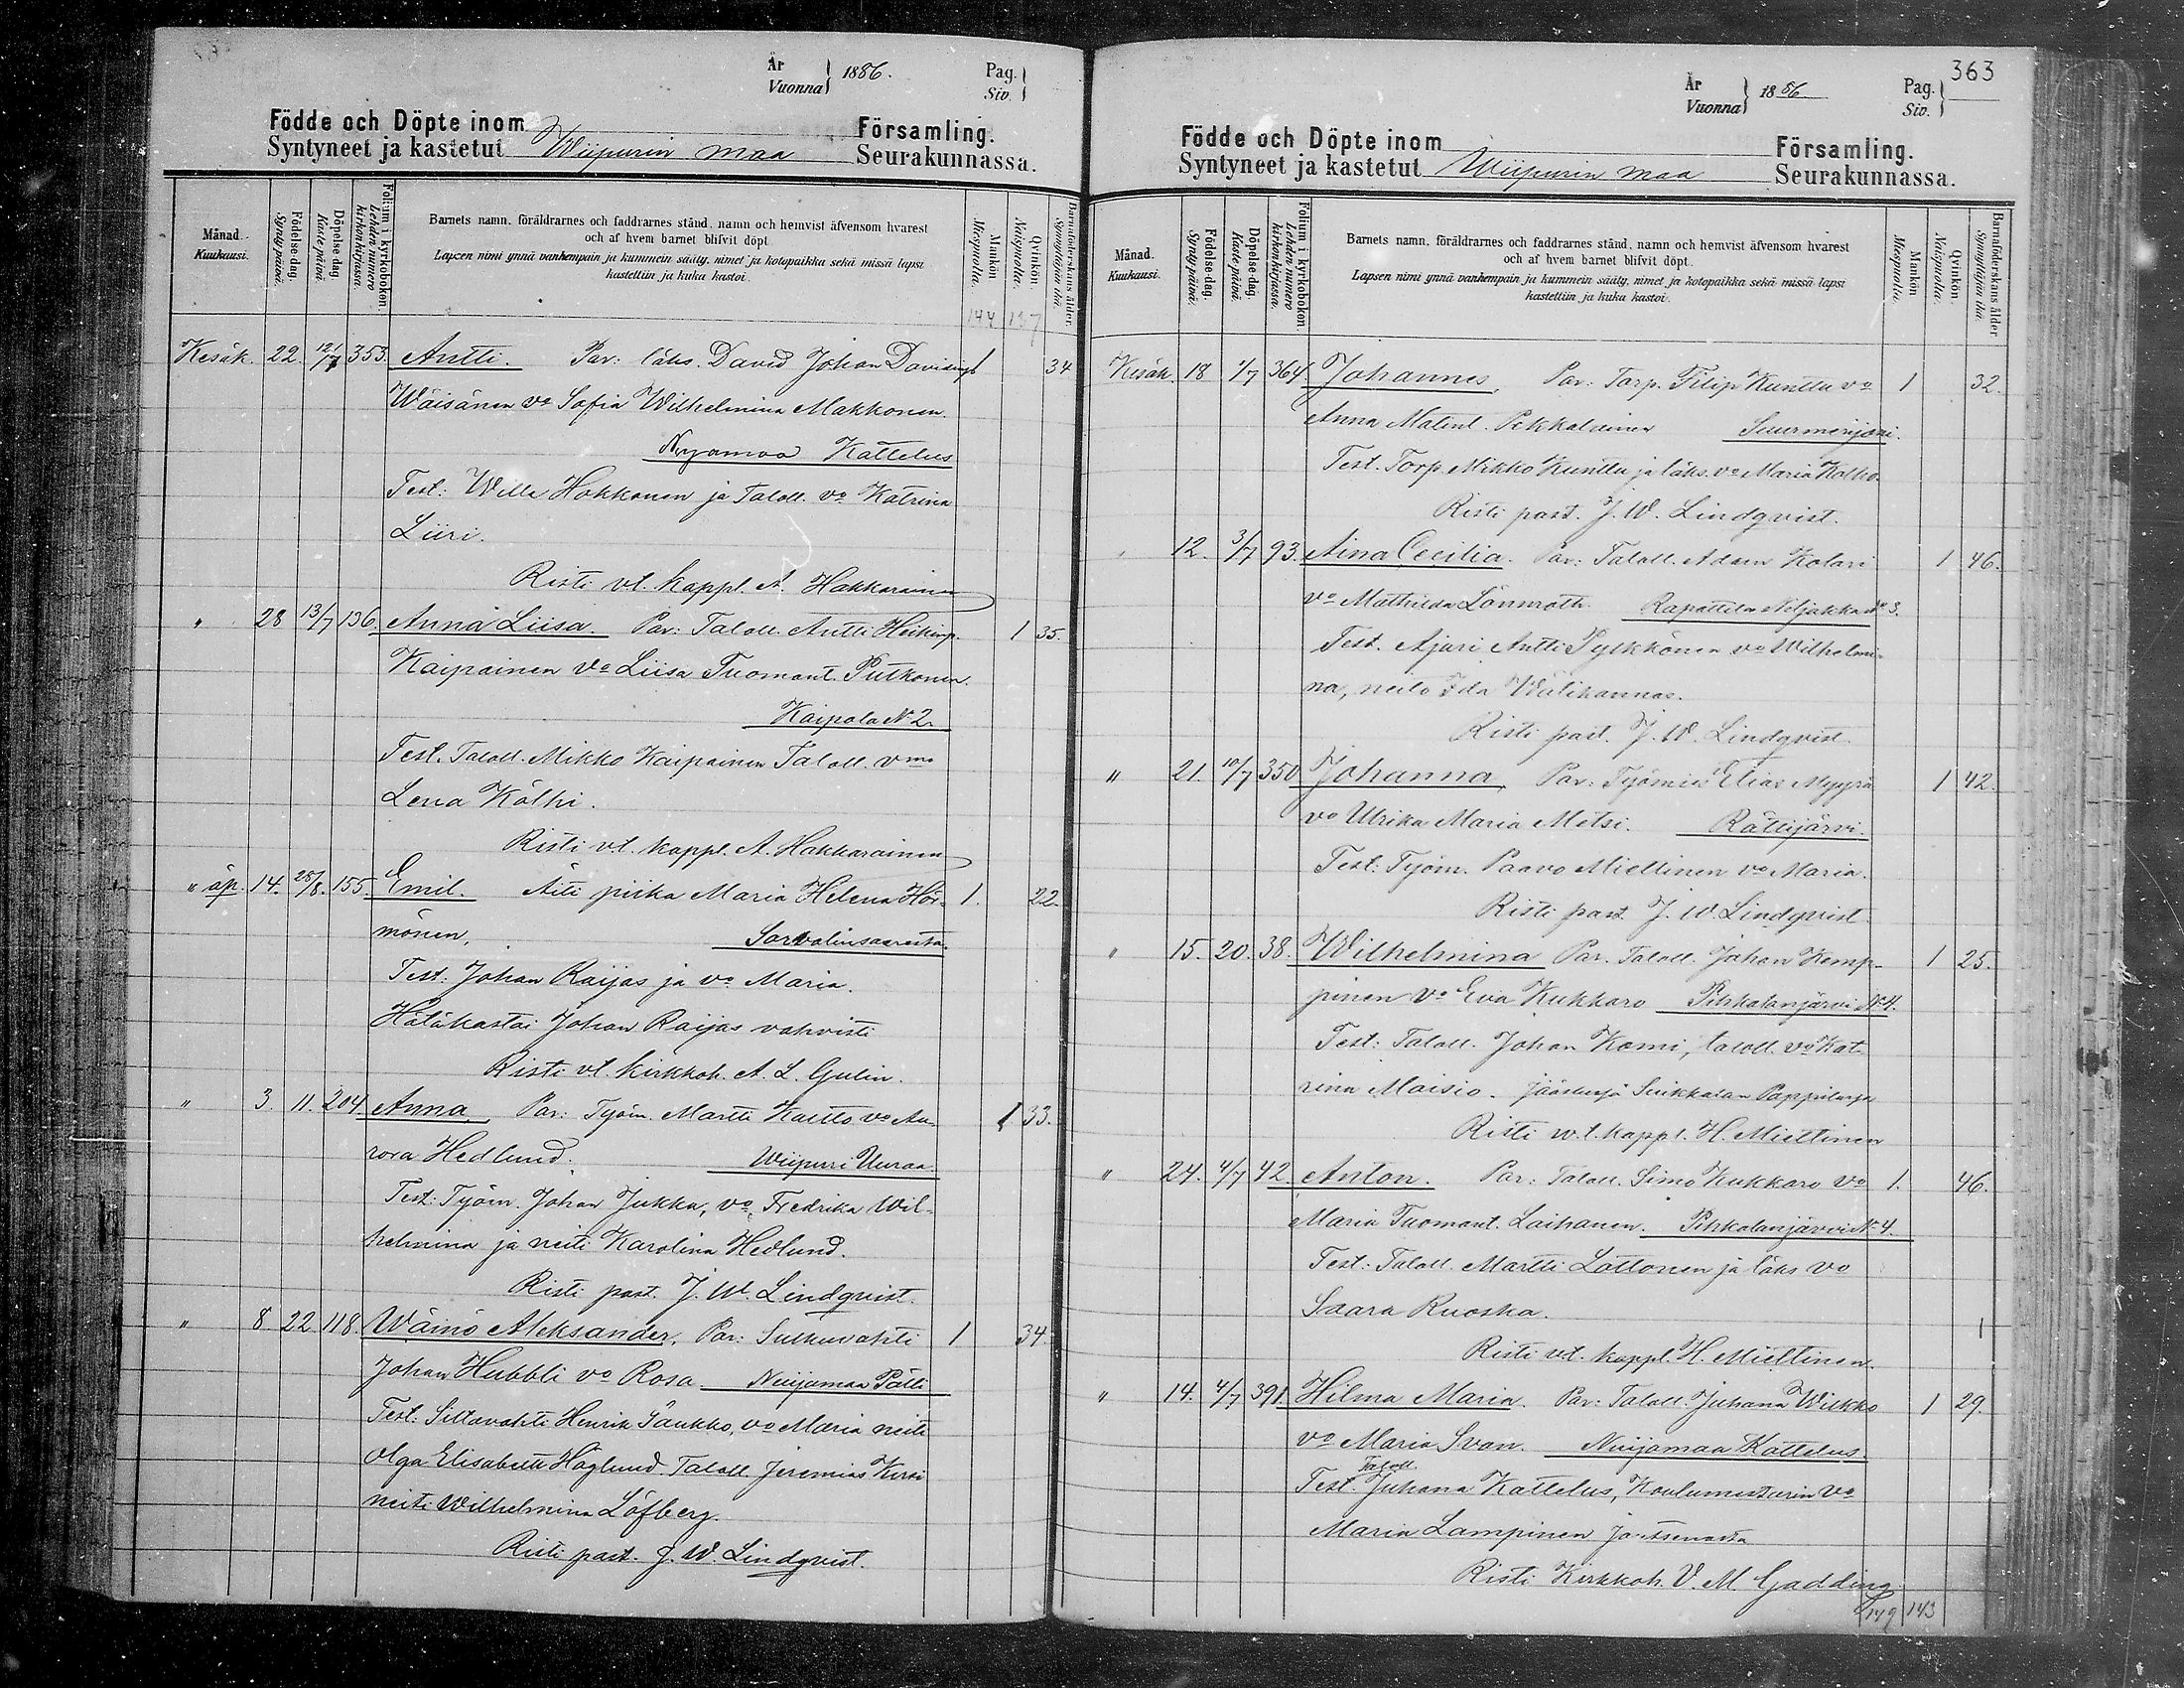 År
Vuonna } 1886.
Pag.
Siv.
Födde och Döpte inom
Syntyneet ja kastetut Wiipurin maa
Församling.
Seurakunnassa.
Månad.
Kuukausi.
Födelse-dag.
Syntypäivä.
Döpelse-dag.
Kastepäivä.
Folium i kyrkoboken.
Lehden numero kirkonkirjassa.
Barnets namn, föräldrarnes och faddrarnes stånd, namn och hemvist äfvensom hvarest
och af hvem barnet blifvit döpt.
Lapsen nimi ynnä vanhempain ja kummein sääty, nimet ja kotopaikka sekä missä lapsi
kastettiin ja kuka kastoi.
Mankön.
Miespuolia.
Qvinkön.
Naispuolia.
Barnaföderskans ålder.
Synnyttäjän ikä.
144 137
Kesäk. 22. 12/7 353. Antti. Par: läks. David Johan Davidinp. 1 34
Wäisänen vo Sofia Wilhelmina Makkonen.
Nyamaa Kattelus
Test: Wille Hokkanen ja Taloll. vo Katrina
Liiri.
Risti vt. kappl. A. Hakkarainen
" 28 13/7 136. Anna Liisa. Par: Taloll. Antti Heikinp. 1 35.
Kaipainen vo Liisa Tuomant. Putkonen.
Kaipola No 2.
Test. Taloll. Mikko Kaipainen Taloll. vmo
Lena Kälhi.
Risti v.t. kappl. A. Hakkarainen
" äp. 14. 28/8. 155. Emil. Äiti piika Maria Helena Hör- 1. 22.
mönen, Sorvalinsaaresta.
Test: Johan Raijas ja vo Maria.
Hätäkastoi Johan Raijas vahvisti
Risti vt. kirkkoh. A. L. Gulin.
" 3. 11. 204 Anna Par: Työm. Martti Kaitto vo Au- 1 33.
rora Hedlund. Wiipuri Uuraa
Test: Työm. Johan Jukka, vo Fredrika Wil-
helmina ja neiti Karolina Hedlund.
Risti past. J. W. Lindqvist.
" 8 22 118 Wäinö Aleksander. Par: Sulkuvahti 1 34.
Johan Hubbli vo Rosa Nuijamaa Pälli
Test: Siltavahti Henrik Saukko, vo Maria neiti
Olga Elisabetti Höglund Taloll. Jeremias
neiti Wilhelmina Löfberg.
Risti past. J. W. Lindqvist.
363
År
Vuonna } 1886
Pag.
Siv.
Födde och Döpte inom
Syntyneet ja kastetut Wiipurin maa
Församling.
Seurakunnassa.
Månad.
Kuukausi.
Födelse-dag.
Syntypäivä.
Döpelse-dag.
Kaste-päivä.
Folium i kyrkoboken
Lehden numero kirkonkirjassa.
Barnets namn, föräldrarnes och faddrarnes stånd, namn och hemvist äfvensom hvarest
och af hvem barnet blifvit döpt.
Lapsen nimi ynnä vanhempain ja kummein sääty, nimet ja kotopaikka sekä missä lapsi
kastettiin ja kuka kastoi.
Mankön
Miespuolia.
Qvinkön.
Naispuolia.
Barnaföderskans ålder
Synnyttäjän ikä.
Kesäk. 18 1/7 364 Johannes, Par: Torp. Filip Kunttu vo 1 32.
Anna Matint. Pekkalainen Suurmerijoki.
Test. Torp. Mikko Kunttu ja läks. vo Maria Kolho.
Risti past. J. W. Lindqvist.
" 12. 3/7 93. Aina Cecilia. Par: Taloll. Adam Kolari 1 46.
vo Mathilda Lönnroth. Rapattila Neljakka No 3.
Test. Ajuri Antti Pylkkönen vo Wilhelmi-
na, neito Ida Wälihannas.
Risti past. J. W. Lindqvist.
" 21. 10/7 350 Johanna, Par: Työmies Elias Myyrä 1 42.
vo Ulrika Maria Metsi. Rättijärvi.
Test: Työm. Paavo Miettinen vo Maria.
Risti past. J. W. Lindqvist.
" 15. 20. 38. Wilhelmina Par. Taloll. Johan Kemp- 1 25.
pinen vo Eva Kukkaro Pihkalanjärvi No 4.
Test: Taloll. Johan Komi, taloll. vo Kat-
rina Maisio. Jääskessä Suikkalan
Risti v.t. kappl. H. Miettinen
" 24. 4/7 42. Anton. Par: Taloll. Simo Kukkaro vo 1. 46.
Maria Tuomant. Laihanen. Pihkalanjärvi No 4.
Test: Taloll. Martti Lattonen ja läks vo
Saara Ruoska.
1
Risti vt. kappl. H. Miettinen.
" 14. 4/7 391 Hilma Maria. Par: Taloll. Juhana Wilkko 1 29.
vo Maria Svan. Nuijamaa Kattelus.
Taloll.
Test. Juhana Kattelus, Koulumestarin vo
Maria Lampinen
Risti Kirkkoh. V. M. Gadding.
149 143